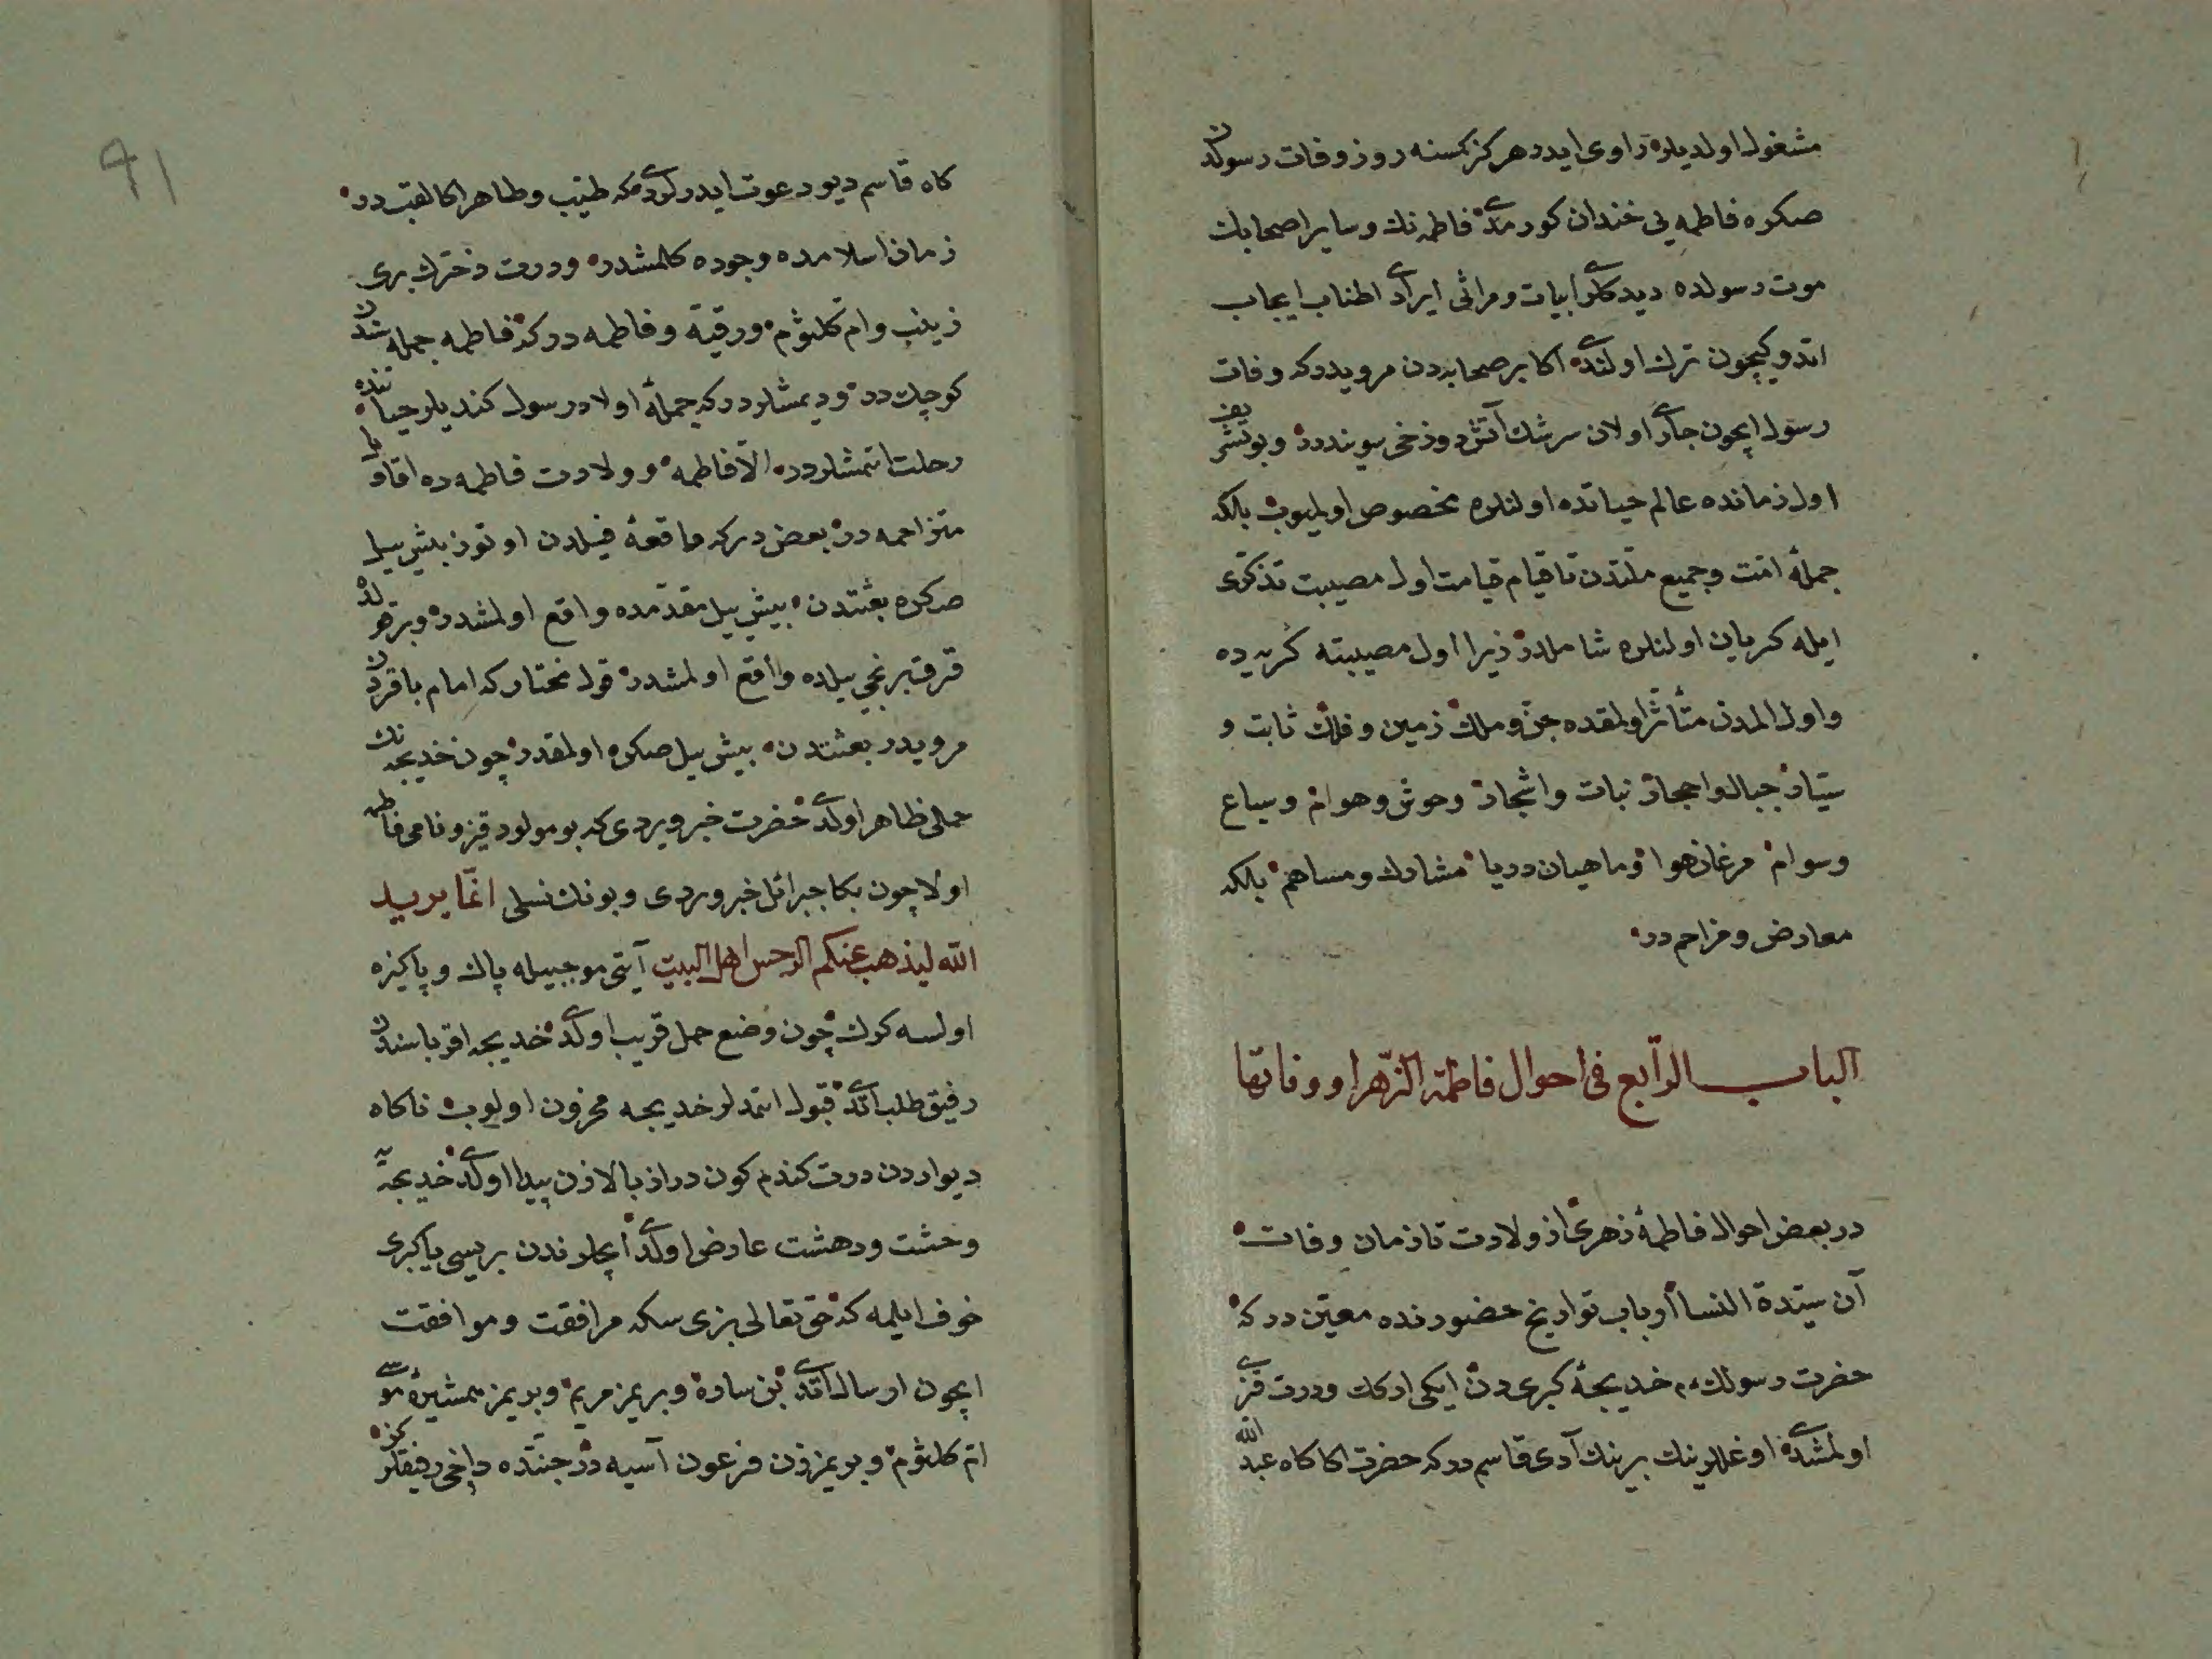 مشغول اولدیلر راوی ایدر هرکز کمسنه روز وفات رسولدن
صکره فاطمه یی خندان کورمدی فاطمه نك وسایر اصحابك
موت رسولده دیدکلری ابیات ومراثی ایرادی اطناب ایجاب
اتدوکیچون ترك اولندی اکابر صحابه دن مرویدر که وفات
رسول ایچون جاری اولان سرشك آتش دوزخی سویندرر وبو تشریف
اول زمانده عالم حیاتده اولنلره مخصوص اولمیوب بلکه
جملهٔ امت وجمیع ملتدن تا قیام قیامت اول مصیبت تذکری
ایله کریان اولنلره شاملدر زیرا اول مصیبته کریه ده
واول المدن متأثر اولمقده جن وملك زمین وفلك ثابت و
سیار جبال واحجار نبات واشجار وحوش وهوام وسباع
وسوام مرغان هوا وماهیان دریا مشارك ومساهم بلکه
معارض ومزاحم در
الباب الرابع فی احوال فاطمة الزهرا ووفاتها
در بعض احوال فاطمهٔ زهری از ولادت تا زمان وفات
آن سیدة النسا ارباب تواریخ حضورنده معین در که
حضرت رسولك خدیجهٔ کبری دن ایکی ارکك ودرت قزی
اولمشدی اوغللرینك برینك آدی قاسم در که حضرت اکا کاه عبد الله
کاه قاسم دیو دعوت ایدرلردی که طیب وطاهر اکا لقب در
زمان اسلامده وجوده کلمشدر ودرت دخترك بری
زینب وام کلثوم ورقیه وفاطمه در که فاطمه جمله سندن
کوچك در ودیمشلردر که جملهٔ اولاد رسول کندیلر حیاتنده
رحلت اتمشلردر الا فاطمه وولادت فاطمه ده اقاویل
متزاحمه در بعض دیر که واقعهٔ فیلدن اوتوز بش ییل
صکره بعثتدن بیش ییل مقدمده واقع اولمشدر وبر قولده
قرق برنجی ییلده واقع اولمشدر قول مختار که امام باقردن
مرویدر بعثتدن بیش ییل صکره اولمقدر چون خدیجه نك
حملی ظاهر اولدی حضرت خبر ویردی که بو مولود قیز ونامی فاطمه
اولا چون بکا جبرائل خبر وردی وبونك نسلی انّما یرید
الله لیذهب عنکم الرجس اهل البیت آیتی موجبیله پاك وپاکیزه
اولسه کرك چون وضع حمل قریب اولدی خدیجه اقرباسندن
رفیق طلب اتدی قبول اتمدلر خدیجه محزون اولوب ناکاه
دیواردن درت کندم کون دراز بالا زن پیدا اولدی خدیجه یه
وحشت ودهشت عارض اولدی انجلرندن بریسی یا کبری
خوف ایلمه که حق تعالی بزی سکه مرافقت وموافقت
ایچون ارسال اتدی بن ساره وبریمز مریم وبریمز همشیرهٔ موسی
ام کلثوم وبریمز زن فرعون آسیه در جنتده داخی رفیقلرکز